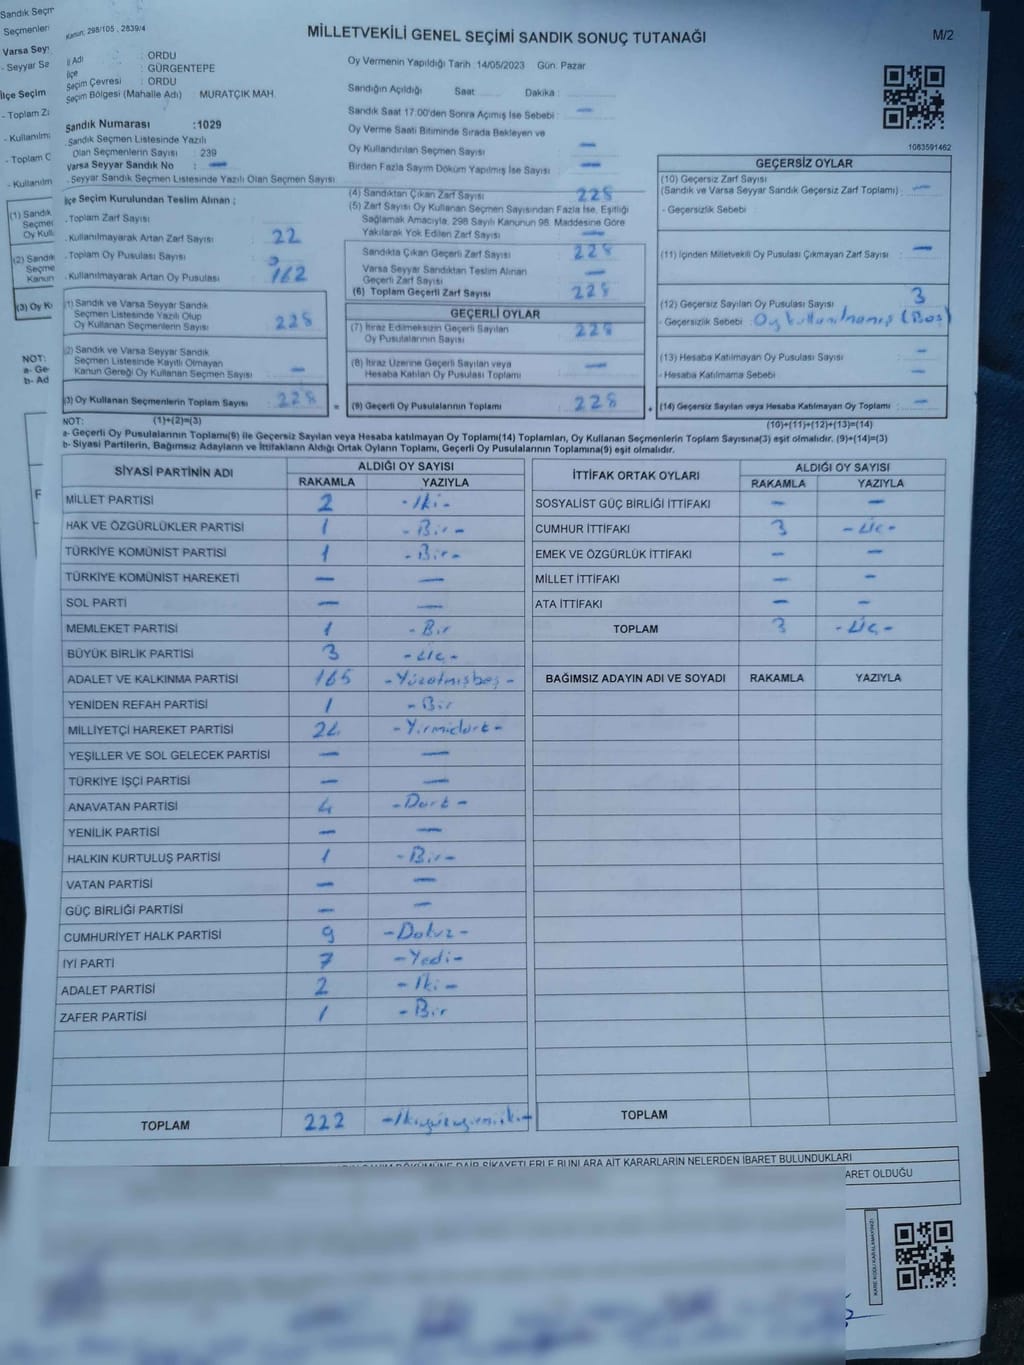 Sandık Seçm
Seçmenler
Varsa Sey
- Seyyar Se
İlçe Seçim
- Kullanılm
- Toplam O
- Kullanılm
(1) Sandık
Seçme
Oy Kull
(2) Sandık
Seçme
Kanun
(3) Oy K
NOT:
a- Ge
b- Ad
Kanun; 298/105 , 2839/4
MİLLETVEKİLİ GENEL SEÇİMİ SANDIK SONUÇ TUTANAĞI
M/2
İl Adı : ORDU
İlçe : GÜRGENTEPE
Seçim Çevresi : ORDU
Seçim Bölgesi (Mahalle Adı) MURATÇIK MAH.
Sandık Numarası :1029
Sandık Seçmen Listesinde Yazılı
Olan Seçmenlerin Sayısı : 239
Varsa Seyyar Sandık No : —
- Seyyar Sandık Seçmen Listesinde Yazılı Olan Seçmen Sayısı
İlçe Seçim Kurulundan Teslim Alınan ;
. Toplam Zarf Sayısı
. Kullanılmayarak Artan Zarf Sayısı : 22
. Toplam Oy Pusulası Sayısı
. Kullanılmayarak Artan Oy Pusulası : 162
(1) Sandık ve Varsa Seyyar Sandık
Seçmen Listesinde Yazılı Olup
Oy Kullanan Seçmenlerin Sayısı : 228
(2) Sandık ve Varsa Seyyar Sandık
Seçmen Listesinde Kayıtlı Olmayan
Kanun Gereği Oy Kullanan Seçmen Sayısı : —
(3) Oy Kullanan Seçmenlerin Toplam Sayısı : 228 =
Oy Vermenin Yapıldığı Tarih :14/05/2023 Gün: Pazar
Sandığın Açıldığı Saat Dakika :
Sandık Saat 17:00'den Sonra Açımış İse Sebebi : —
Oy Verme Saati Bitiminde Sırada Bekleyen ve
Oy Kullandırılan Seçmen Sayısı : —
Birden Fazla Sayım Döküm Yapılmış İse Sayısı : —
(4) Sandıktan Çıkan Zarf Sayısı : 228
(5) Zarf Sayısı Oy Kullanan Seçmen Sayısından Fazla İse, Eşitliği
Sağlamak Amacıyla, 298 Sayılı Kanunun 98. Maddesine Göre
Yakılarak Yok Edilen Zarf Sayısı : —
Sandıkta Çıkan Geçerli Zarf Sayısı : 228
Varsa Seyyar Sandıktan Teslim Alınan
Geçerli Zarf Sayısı : —
(6) Toplam Geçerli Zarf Sayısı : 228
GEÇERLİ OYLAR
(7) İtiraz Edilmeksizin Geçerli Sayılan
Oy Pusulalarının Sayısı : 228
(8) İtiraz Üzerine Geçerli Sayılan veya
Hesaba Katılan Oy Pusulası Toplamı : —
(9) Geçerli Oy Pusulalarının Toplamı : 228 +
1083591462
GEÇERSİZ OYLAR
(10) Geçersiz Zarf Sayısı
(Sandık ve Varsa Seyyar Sandık Geçersiz Zarf Toplamı) : —
- Geçersizlik Sebebi
(11) İçinden Milletvekili Oy Pusulası Çıkmayan Zarf Sayısı : —
(12) Geçersiz Sayılan Oy Pusulası Sayısı : 3
- Geçersizlik Sebebi : Oy kullanılmamış (Boş)
(13) Hesaba Katılmayan Oy Pusulası Sayısı : —
- Hesaba Katılmama Sebebi : —
(14) Geçersiz Sayılan veya Hesaba Katılmayan Oy Toplamı : —
NOT: (1)+(2)=(3)
(10)+(11)+(12)+(13)=(14)
a- Geçerli Oy Pusulalarının Toplamı(9) ile Geçersiz Sayılan veya Hesaba katılmayan Oy Toplamı(14) Toplamları, Oy Kullanan Seçmenlerin Toplam Sayısına(3) eşit olmalıdır. (9)+(14)=(3)
b- Siyasi Partilerin, Bağımsız Adayların ve İttifakların Aldığı Ortak Oyların Toplamı, Geçerli Oy Pusulalarının Toplamına(9) eşit olmalıdır.
SİYASİ PARTİNİN ADI ALDIĞI OY SAYISI
RAKAMLA YAZIYLA
MİLLET PARTİSİ 2 -İki-
HAK VE ÖZGÜRLÜKLER PARTİSİ 1 -Bir-
TÜRKİYE KOMÜNİST PARTİSİ 1 -Bir-
TÜRKİYE KOMÜNİST HAREKETİ — —
SOL PARTİ — —
MEMLEKET PARTİSİ 1 -Bir
BÜYÜK BİRLİK PARTİSİ 3 -Üç-
ADALET VE KALKINMA PARTİSİ 165 -Yüzatmışbeş-
YENİDEN REFAH PARTİSİ 1 -Bir
MİLLİYETÇİ HAREKET PARTİSİ 24 -Yirmidört-
YEŞİLLER VE SOL GELECEK PARTİSİ — —
TÜRKİYE İŞÇİ PARTİSİ — —
ANAVATAN PARTİSİ 4 -Dört-
YENİLİK PARTİSİ — —
HALKIN KURTULUŞ PARTİSİ 1 -Bir-
VATAN PARTİSİ — —
GÜÇ BİRLİĞİ PARTİSİ — —
CUMHURİYET HALK PARTİSİ 9 -Dokuz-
İYİ PARTİ 7 -Yedi-
ADALET PARTİSİ 2 -İki-
ZAFER PARTİSİ 1 -Bir
TOPLAM 222 -İkiyüzyirmiiki-
İTTİFAK ORTAK OYLARI ALDIĞI OY SAYISI
RAKAMLA YAZIYLA
SOSYALİST GÜÇ BİRLİĞİ İTTİFAKI — —
CUMHUR İTTİFAKI 3 -Üç-
EMEK VE ÖZGÜRLÜK İTTİFAKI — —
MİLLET İTTİFAKI — —
ATA İTTİFAKI — —
TOPLAM 3 -Üç-
BAĞIMSIZ ADAYIN ADI VE SOYADI RAKAMLA YAZIYLA
TOPLAM
DAİR ŞİKAYETLERLE BUNLARA AİT KARARLARIN NELERDEN İBARET BULUNDUKLARI
ARET OLDUĞU
KARE KODU KARALAMAYINIZ!